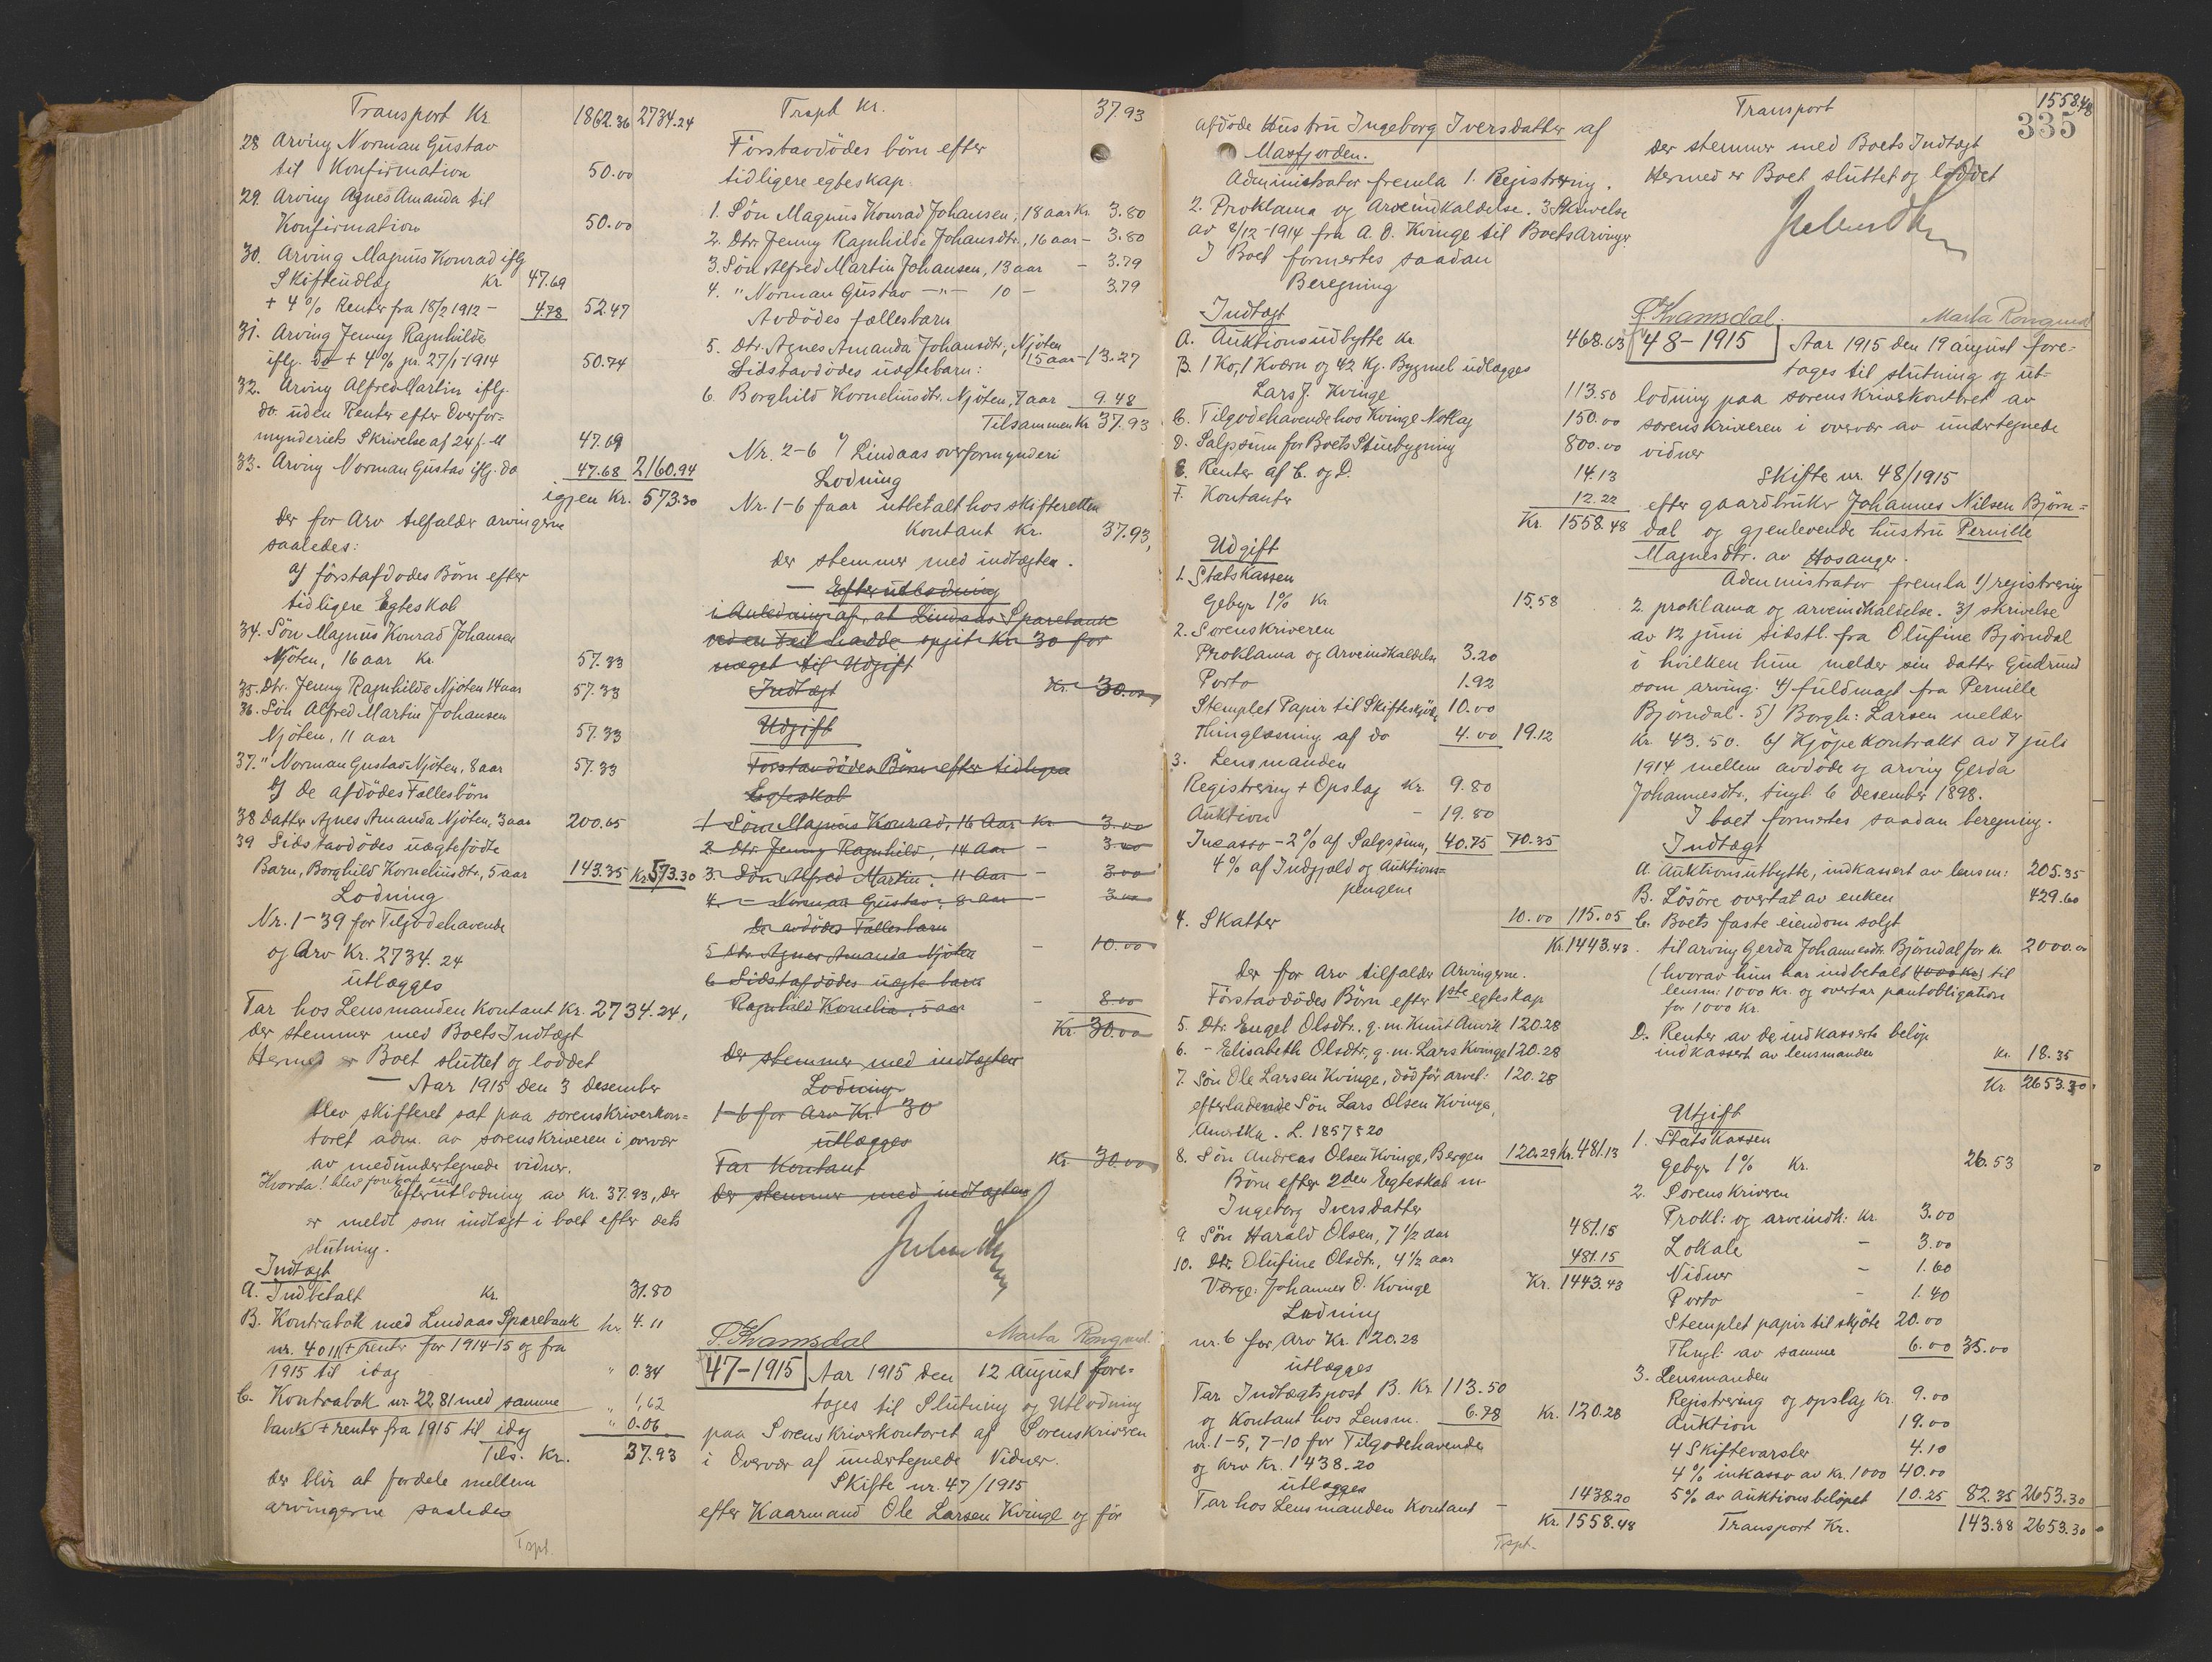 Transport Kr 1862.36 2734.24
28 Arving Norman Gustav
til Konfirmation 50.00
29. Arving Agnes Amanda til
Konfirmation 50.00
30. Arving Magnus Konrad iflg
Skifteudlæg kr. 47.69
+ 4% Renter fra 18/2 1912 - 4.78 52.47
31. Arving Jenny Ragnhilde
iflg. do + 4% pr. 27/1-1914 50.74
32. Arving Alfred Martin iflg.
do. uden Renter efter Overfor-
mynderiets Skrivelse af 24/
47.69
33. Arving Norman Gustav iflg. do 47.68 2160.94
igjen Kr. 573.30
der for Arv tilfalder arvingerne
saaledes:
a) förstafdödes Börn efter
tidligere Egteskab
34. Sön Magnus Konrad Johansen
Njöten, 16 aar kr. 57.33
35. Dtr. Jenny Ragnhilde Njöten 14 aar 57.33
36. Sön Alfred Martin Johansen
Njöten, 11 aar 57.33
37. " Norman Gustav Njöten, 8 aar 57.33
b) De afdödes Fællesbörn
38 Datter Agnes Amanda Njöten, 3 aar 200.65
39 Sidstavdödes uægtefödte
Barn, Borghild Kornelíusdtr, 5 aar 143.35 Kr. 573.30
Lodning
Nr. 1-39 for Tilgodehavende
og Arv Kr. 2734.24
utlægges
Tar hos Lensmanden Kontant Kr. 2734.24,
der stemmer med Boets Indtægt
Hermed er Boet sluttet og loddet
— Aar 1915 den 3 desember
blev skifteret sat paa sorenskriverkon-
toret adm. av sorenskriveren i overvær
av medundertegnede vidner.
Hvorda! blev foretat en
Efterutlodning av kr. 37.93, der
er meldt som indtægt i boet efter dets
slutning.
Indtægt
A. Indbetalt kr. 31.80
B. Kontrabok med Lindaas Sparebank kr. 4.11
nr. 4011 + renter for 1914-15 og fra
1915 til idag " 0.34
C. Kontrabok nr. 2281 med samme " 1,62
bank + renter fra 1915 til idag " 0.06
Tils. Kr. 37.93
der blir at fordele mellem
arvingerne saaledes
Tspt.
Trspt Kr. 37.93
Förstavdödes börn efter
tidligere egteskap.
1. Sön Magnus Konrad Johansen, 18 aar Kr. 3.80
2. Dtr. Jenny Ragnhilde Johansdtr., 16 aar - 3.80
3. Sön Alfred Martin Johansen, 13 aar - 3.79
4. " Norman Gustav -"- 10 - 3.79
Avdödes fællesbarn
5. Dtr. Agnes Amanda Johansdtr, Njöten
15 aar - 13.27
Sidstavdödes uægtebarn:
6. Borghild Kornelíusdtr. Njöten, 7 aar 9.48
Tilsammen Kr 37.93
Nr. 2-6 i/ Lindaas overformynderi
Lodning
Nr. 1-6 faar utbetalt hos skifteretten
Kontant kr. 37.93,
der stemmer med indtægten.
— Efterutlodning
i Anledning af, at Lindaas Sparebank
ved en Feil hadde opgit Kr 30 for
meget til Udgift
Indtægt Kr. 30.00
Udgift
Förstavdödes Börn efter tidligere
Egteskab
1 Sön Magnus Konrad, 16 Aar Kr. 3.00
2 Dtr Jenny Ragnhild, 14 Aar - 3.00
3 Sön Alfred Martin. 11 Aar - 3.00
4. - Norman Gustav, 8 aar - 3.00
De avdödes Fællesbarn
5 Dtr. Agnes Amanda Njöten - 10.00
6 Sidstafdödes uægte barn
Ragnhild Kornelia, 5 aar - 8.00
Kr. 30.00
der stemmer med indtægten
Lodning
1-6 for Arv Kr. 30
utlægges
Tar Kontant Kr. 30.00
der stemmer med indtægten
P. Kvamsdal Marta
47-1915 Aar 1915 den 12 August fore-
tages til Slutning og Utlodning
paa Sorenskriverkontoret af Sorenskriveren
i Overvær af undertegnede Vidner.
Skifte nr. 47/1915
efter Kaarmand Ole Larsen Kvinge og för
afdöde Hustru Ingeborg Iversdatter af
Masfjorden.
Administrator fremla 1. Registrering.
2. Proklama og Arveindkaldelse. 3 Skrivelse
av 8/12-1914 fra A. O. Kvinge til Boets Arvinger
I Boet formertes saadan
Beregning
Indtægt
A. Auktionsudbytte Kr 468.63
B. 1 Ko, 1 Kværn og 42 Kg. Bygmel udlægges
Lars J. Kvinge 113.50
C. Tilgodehavende hos Kvinge Notlag 150.00
D. Salgssum for Boets Stuebygning 800.00
E. Renter af C. og D. 14.13
F. Kontanter 12.22
Kr. 1558.48
Udgift
1. Statskassen
Gebyr 1% Kr 15.58
2. Sorenskriveren
Proklama og Arveindkaldelse 3.20
Porto 1.92
Stemplet Papir til Skifteskjöde 10.00
Thinglæsning af do 4.00 19.12
3. Lensmanden
Registrering + Opslag Kr. 9.80
Auktion - 19.80
Incasso - 2% af Salgssum, 40.75 70.35
4% af Indgjæld og Auktions-
pengene
4. Skatter 10.00 115.05
Kr. 1443.43
der for Arv tilfalder Arvingerne.
Förstavdödes Börn efter 1ste egteskap
5. Dtr. Engel Olsdtr., g. m. Knut Anvik 120.28
6. - Elisabeth Olsdtr, g. m. Lars Kvinge 120.28
7. Sön Ole Larsen Kvinge, död för arvel: 120.28
efterladende Sön Lars Olsen Kvinge,
Amerika. L. 1857 § 20
8. Sön Andreas Olsen Kvinge, Bergen 120.29 Kr. 481.13
Börn efter 2den Egteskab m
Ingeborg Iversdatter
9. Sön Harald Olsen, 7 1/2 aar 481.15
10. Dtr. Olufine Olsdtr, 4 1/2 aar 481.15
Værge: Johannes O. Kvinge Kr. 1443.43
Lodning
nr. 6 for Arv Kr. 120.28
utlægges
Tar Indtægtspost B. Kr. 113.50
og Kontant hos Lensm. 6.78 Kr. 120.28
nr. 1-5, 7-10 for Tilgodehavende
og Arv Kr. 1438.20
utlægges
Tar hos Lensmanden Kontant - 1438.20
Kr. 1558.48
Trspt.
Transport 1558.48
335
der stemmer med Boets Indtægt
Hermed er Boet sluttet og loddet
P. Kvamsdal. Marta
48-1915 Aar 1915 den 19 august fore-
tages til slutning og ut-
lodning paa sorenskriverkontoret av
sorenskriveren i overvær av undertegnede
vidner
Skifte nr. 48/1915
efter gaardbruker Johannes Nilsen Björn-
dal og gjenlevende hustru Pernille
Magnesdtr. av Hosanger.
Administrator fremla 1) registrering
2. proklama og arveindkaldelse. 3) skrivelse
av 12 juni sidstl. fra Olufine Björndal
i hvilken hun melder sin datter Gudrund
som arving. 4) fuldmagt fra Pernille
Björndal. 5) Borgh: Larsen melder
Kr. 43.50. 6) Kjöpekontrakt av 7 juli
1914 mellem avdöde og arving Gerda
Johannesdtr., tingl. 6 desember 1898.
I boet formertes saadan beregning.
Indtægt
A. Auktionsutbytte, indkassert av lensm: 205.35
B. Lösöre overtat av enken 429.60
C. Boets faste eiendom solgt
til arving Gerda Johannesdtr. Björndal for kr. 2000.00
(hvorav hun har indbetalt 1000 kr.) til
lensm: 1000 kr. og overtar pantobligation
for 1000 Kr.
D. Renter av de indkasserte belöp
indkassert av lensmanden Kr. 18.35
Kr. 2653.30
Utgift
1. Statskassen
gebyr 1% Kr. 26.53
2. Sorenskriveren
Prokl: og arveindk: Kr. 3.00
Lokale - 3.00
Vidner - 1.60
Porto - 1.40
Stemplet papir til skjöte 20.00
Thngl. av samme 6.00 35.00
3. Lensmanden
Registrering og opslag Kr. 9.00
Auktion 19.00
4 Skiftevarsler 4.10
4% inkasso av Kr. 1000 40.00
5% av auktionsbelöpet 10.25 82.35 2653.30
Transport Kr. 143.88 2653.30